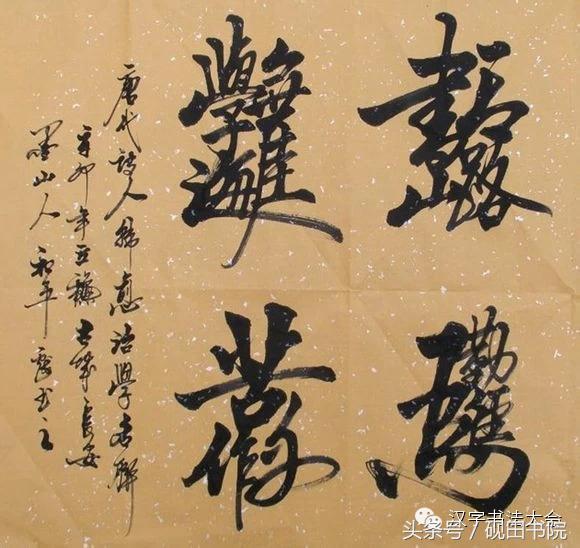 書山有路
勤為徑
學海無涯
苦作舟
唐代詩人韓愈治學名聯
辛卯年 穐古城長安
墨山人和平 書之
汉字书法大会
头条号/砚田书院